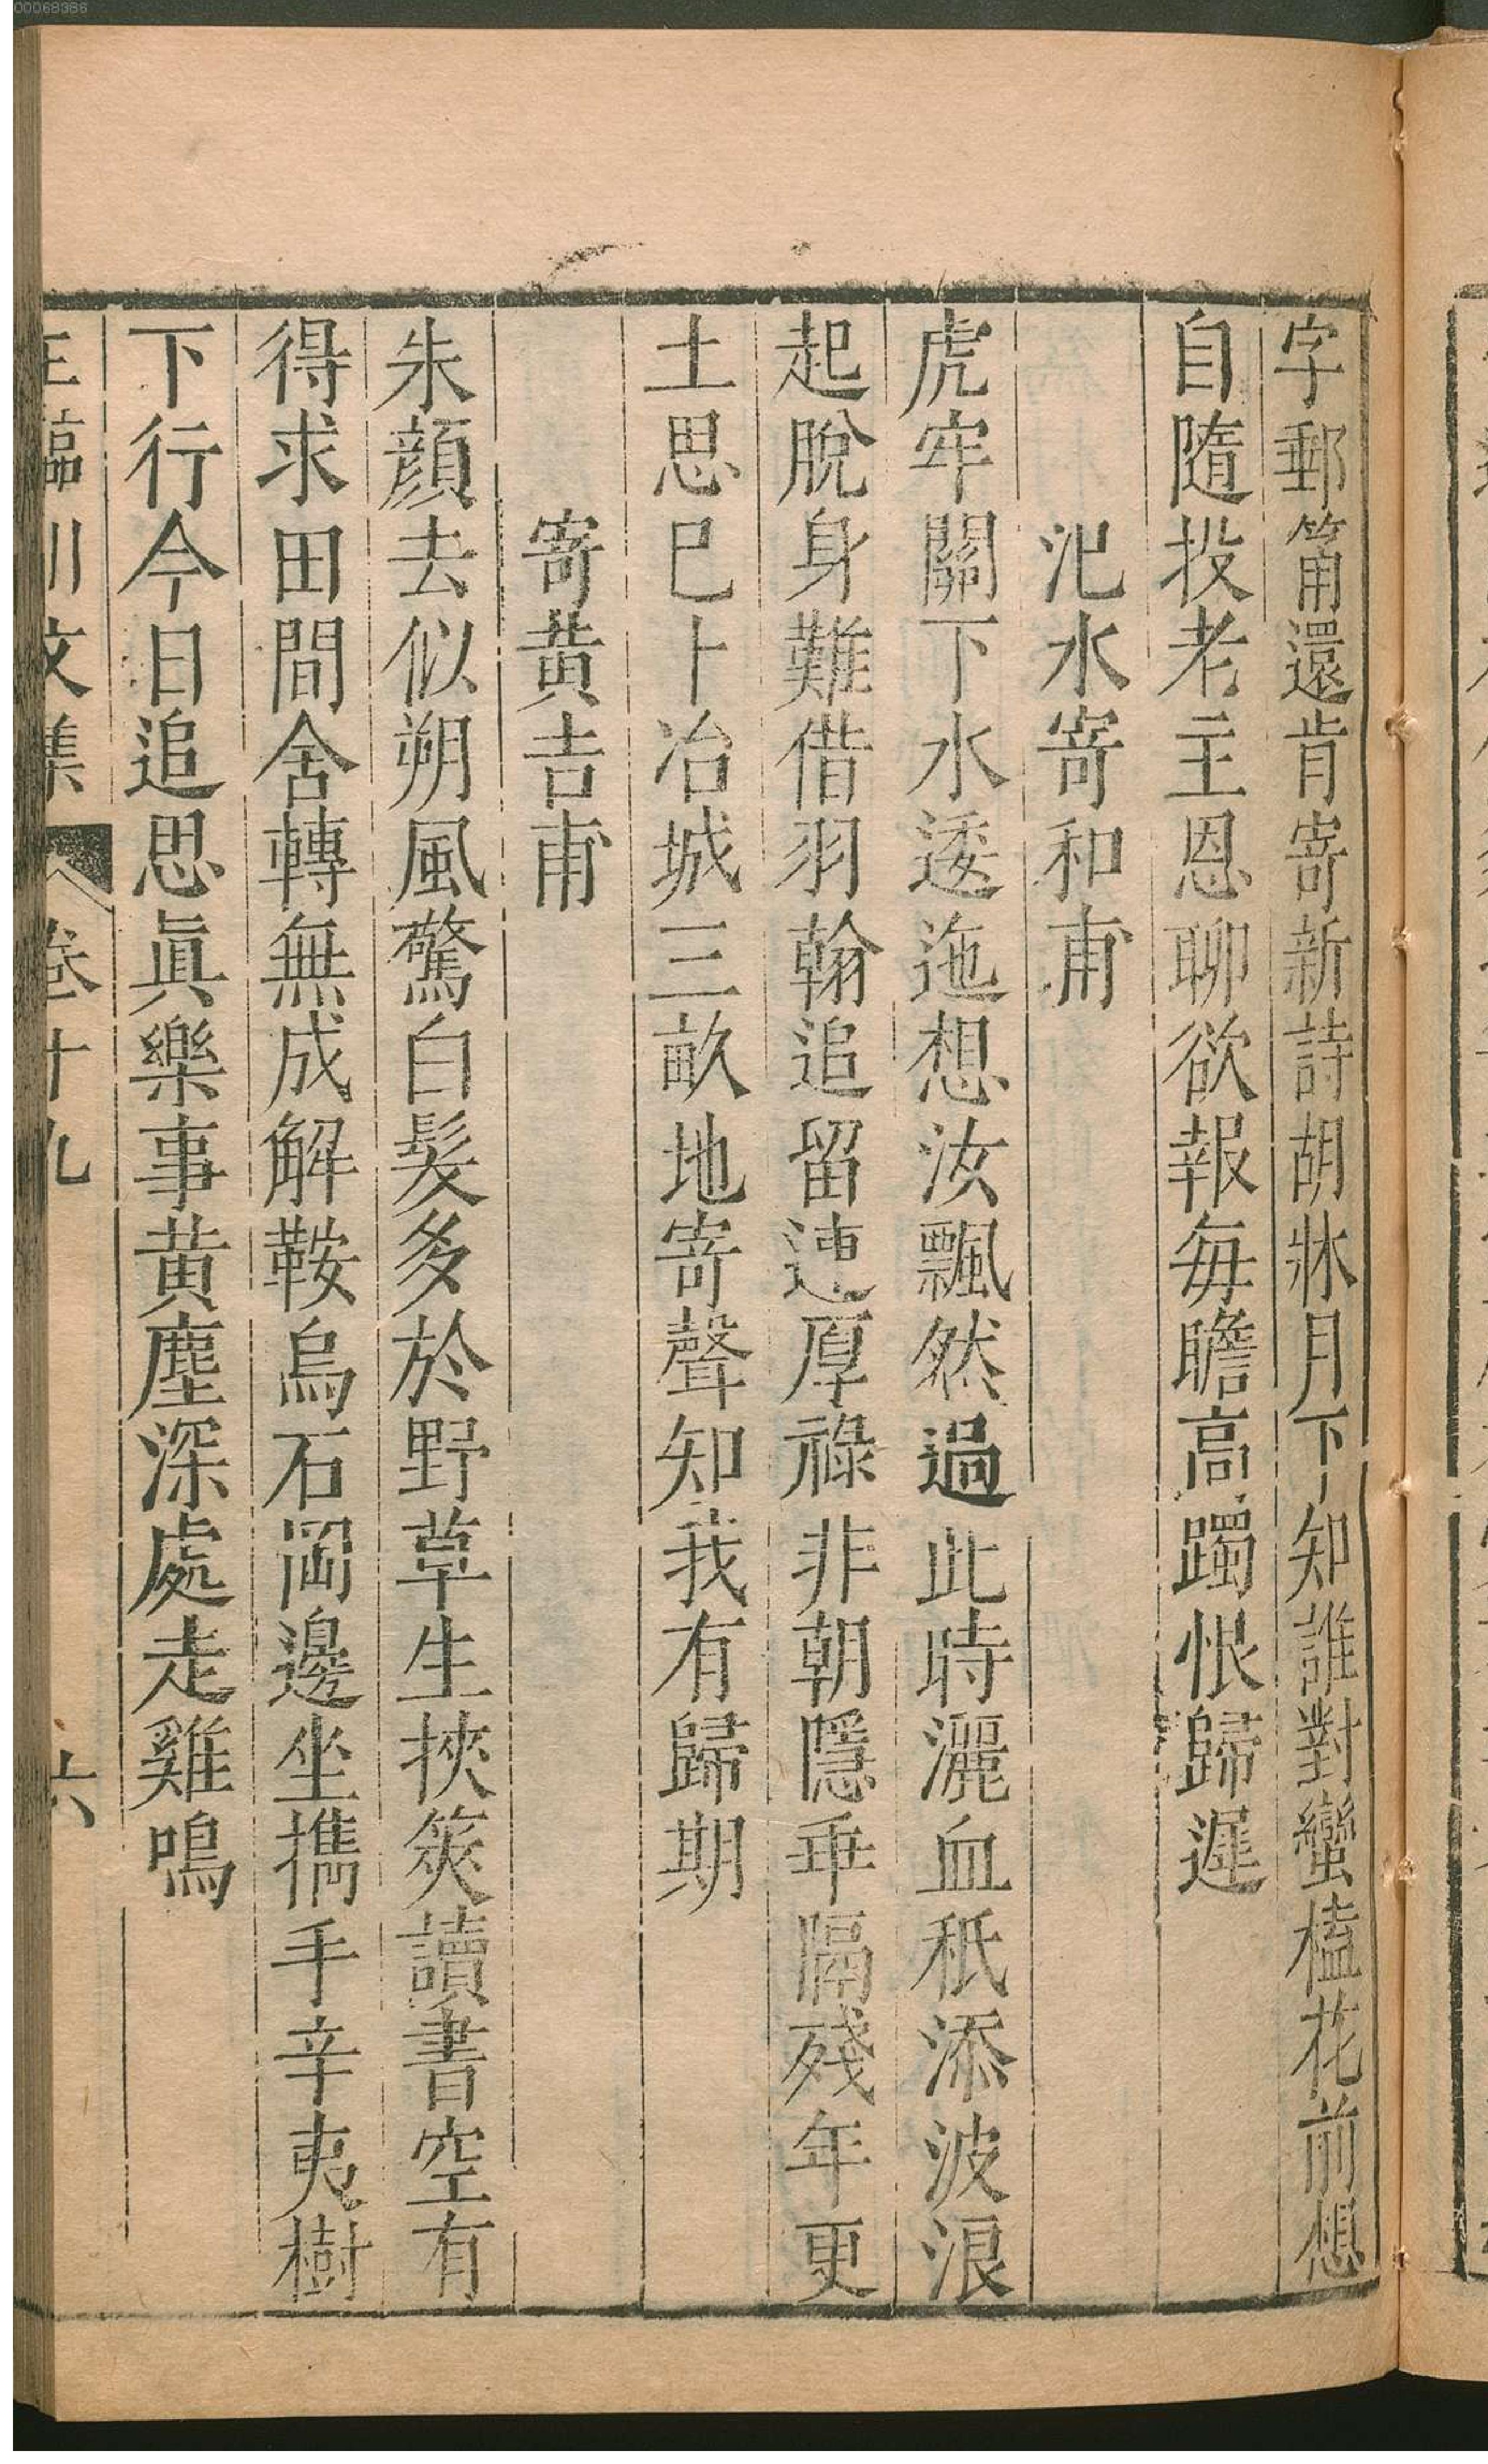 字郵筩還肯寄新詩胡牀月下知誰對蠻榼花前想
自隨投老主恩聊欲報每瞻高躅恨歸遲
汜水寄和甫
虎牢關下水逶迤想汝飄然過此時灑血秖添波浪
起脫身難借羽翰追留連厚祿非朝隱乖隔殘年更
土思已卜冶城三畝地寄聲知我有歸期
寄黃吉甫
朱顏去似朔風驚白髮多於野草生挾筴讀書空有
得求田問舍轉無成解鞍烏石岡邊坐攜手辛夷樹
下行今日追思眞樂事黃塵深處走雞鳴
王臨川文集 卷十九 六
00068386